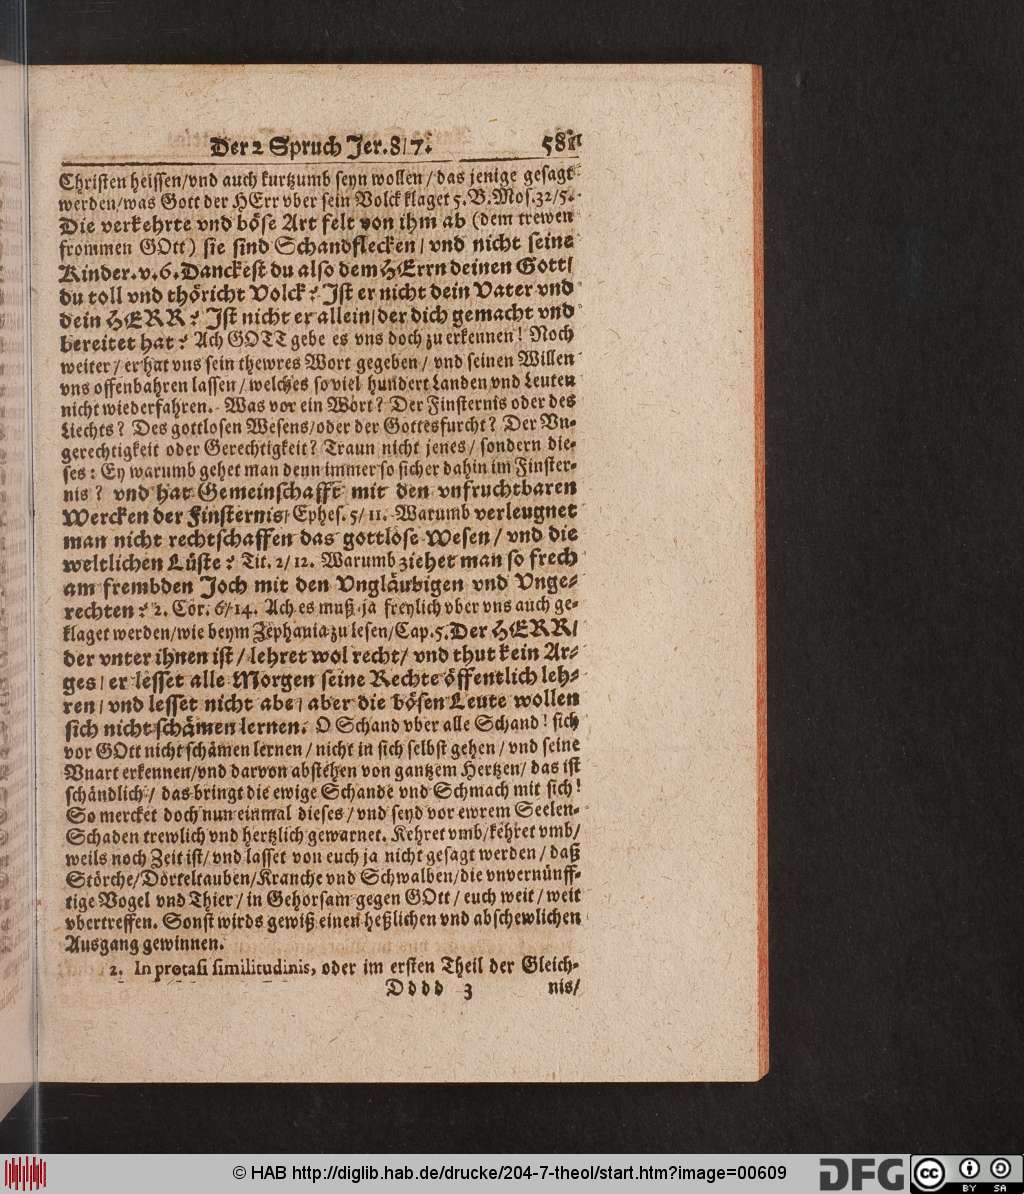 Der 2 Spruch Jer. 8/7. 581
Christen heissen/vnd auch kurtzumb seyn wollen/das jenige gesagt
werden/was Gott der HErr vber sein Volck klaget 5. B. Mos. 32/5.
Die verkehrte vnd böse Art felt von ihm ab (dem trewen
frommen GOtt) sie sind Schandflecken/ vnd nicht seine
Kinder. v. 6. Danckest du also dem HErrn deinen Gott/
du toll vnd thöricht Volck? Ist er nicht dein Vater vnd
dein HERR? Ist nicht er allein/der dich gemacht vnd
bereitet hat? Ach GOTT gebe es vns doch zu erkennen! Noch
weiter/ er hat vns sein thewres Wort gegeben/ vnd seinen Willen
vns offenbahren lassen/ welches so viel hundert Landen vnd Leuten
nicht wiederfahren. Was vor ein Wort? Der Finsternis oder des
Liechts? Des gottlosen Wesens/oder der Gottesfurcht? Der Vn-
gerechtigkeit oder Gerechtigkeit? Traun nicht jenes/ sondern die-
ses: Ey warumb gehet man denn immer so sicher dahin im Finster-
nis? vnd hat Gemeinschafft mit den vnfruchtbaren
Wercken der Finsternis/ Ephes. 5/11. Warumb verleugnet
man nicht rechtschaffen das gottlose Wesen/ vnd die
weltlichen Lüste? Tit. 2/12. Warumb ziehet man so frech
am frembden Joch mit den Vngläubigen vnd Vnge-
rechten? 2. Cor. 6/14. Ach es muß ja freylich vber vns auch ge-
klaget werden/wie beym Zephania zu lesen/Cap. 5. Der HERR/
der vnter ihnen ist/ lehret wol recht/ vnd thut kein Ar-
ges/ er lesset alle Morgen seine Rechte öffentlich leh-
ren/ vnd lesset nicht abe/ aber die bösen Leute wollen
sich nicht schämen lernen. O Schand vber alle Schand! sich
vor GOtt nicht schämen lernen/ nicht in sich selbst gehen/ vnd seine
Vnart erkennen/vnd darvon abstehen von gantzem Hertzen/ das ist
schändlich/ das bringt die ewige Schande vnd Schmach mit sich!
So mercket doch nun einmal dieses/ vnd seyd vor ewrem Seelen-
Schaden trewlich vnd hertzlich gewarnet. Kehret vmb/kehret vmb/
weils noch Zeit ist/ vnd lasset von euch ja nicht gesagt werden/ daß
Störche/Dörteltauben/Kranche vnd Schwalben/die vnvernünff-
tige Vogel vnd Thier/ in Gehorsam gegen GOtt/ euch weit/ weit
vbertreffen. Sonst wirds gewiß einen heßlichen vnd abschewlichen
Ausgang gewinnen.
2. In protasi similitudinis, oder im ersten Theil der Gleich-
Dddd 3 nis/
© HAB http://diglib.hab.de/drucke/204-7-theol/start.htm?image=00609
DFG
cc BY SA